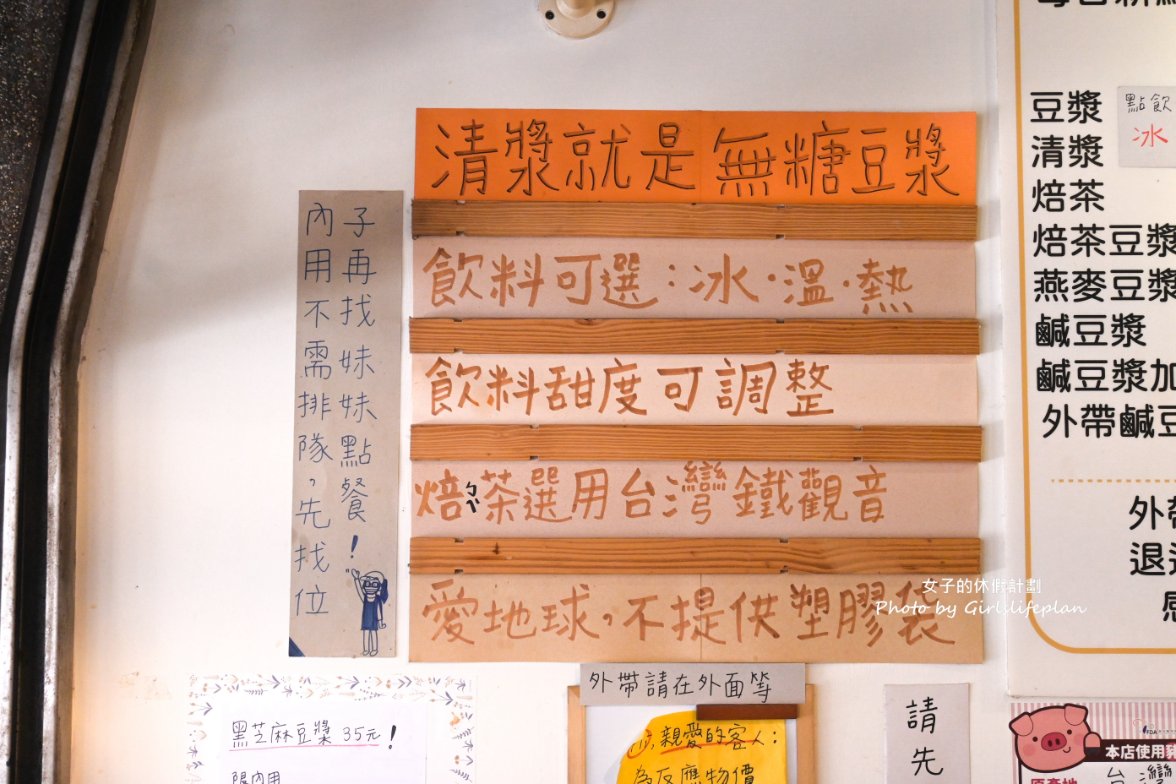 清漿就是無糖豆漿
飲料可選：冰·溫·熱
飲料甜度可調整
焙ㄅㄟ茶選用台灣鐵觀音
愛地球，不提供塑膠袋
內用不需排隊，先找位
子再找妹妹點餐！
豆漿
清漿
焙茶
焙茶豆漿
燕麥豆漿
鹹豆漿
鹹豆漿加
外帶鹹豆
點飲
冰
外帶
退
女子的休假計劃
Photo by Girlslifeplan
外帶請在外面等
黑芝麻豆漿 35元！
限內用
親愛的客人：
為反應物價
請
先
本店使用豬
台灣